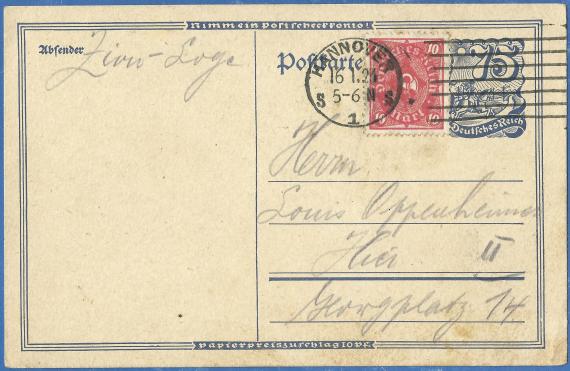 Nimm ein Postscheckkonto!
Absender
Zion-Loge
Postkarte
HANNOVER
16 1.24
5-6 N
S S
1
10 10
10 10
75
Deutsches Reich
Herrn
Louis Oppenheimer
Hier II
Georgplatz 14
Papierpreiszuschlag 10 Pf.